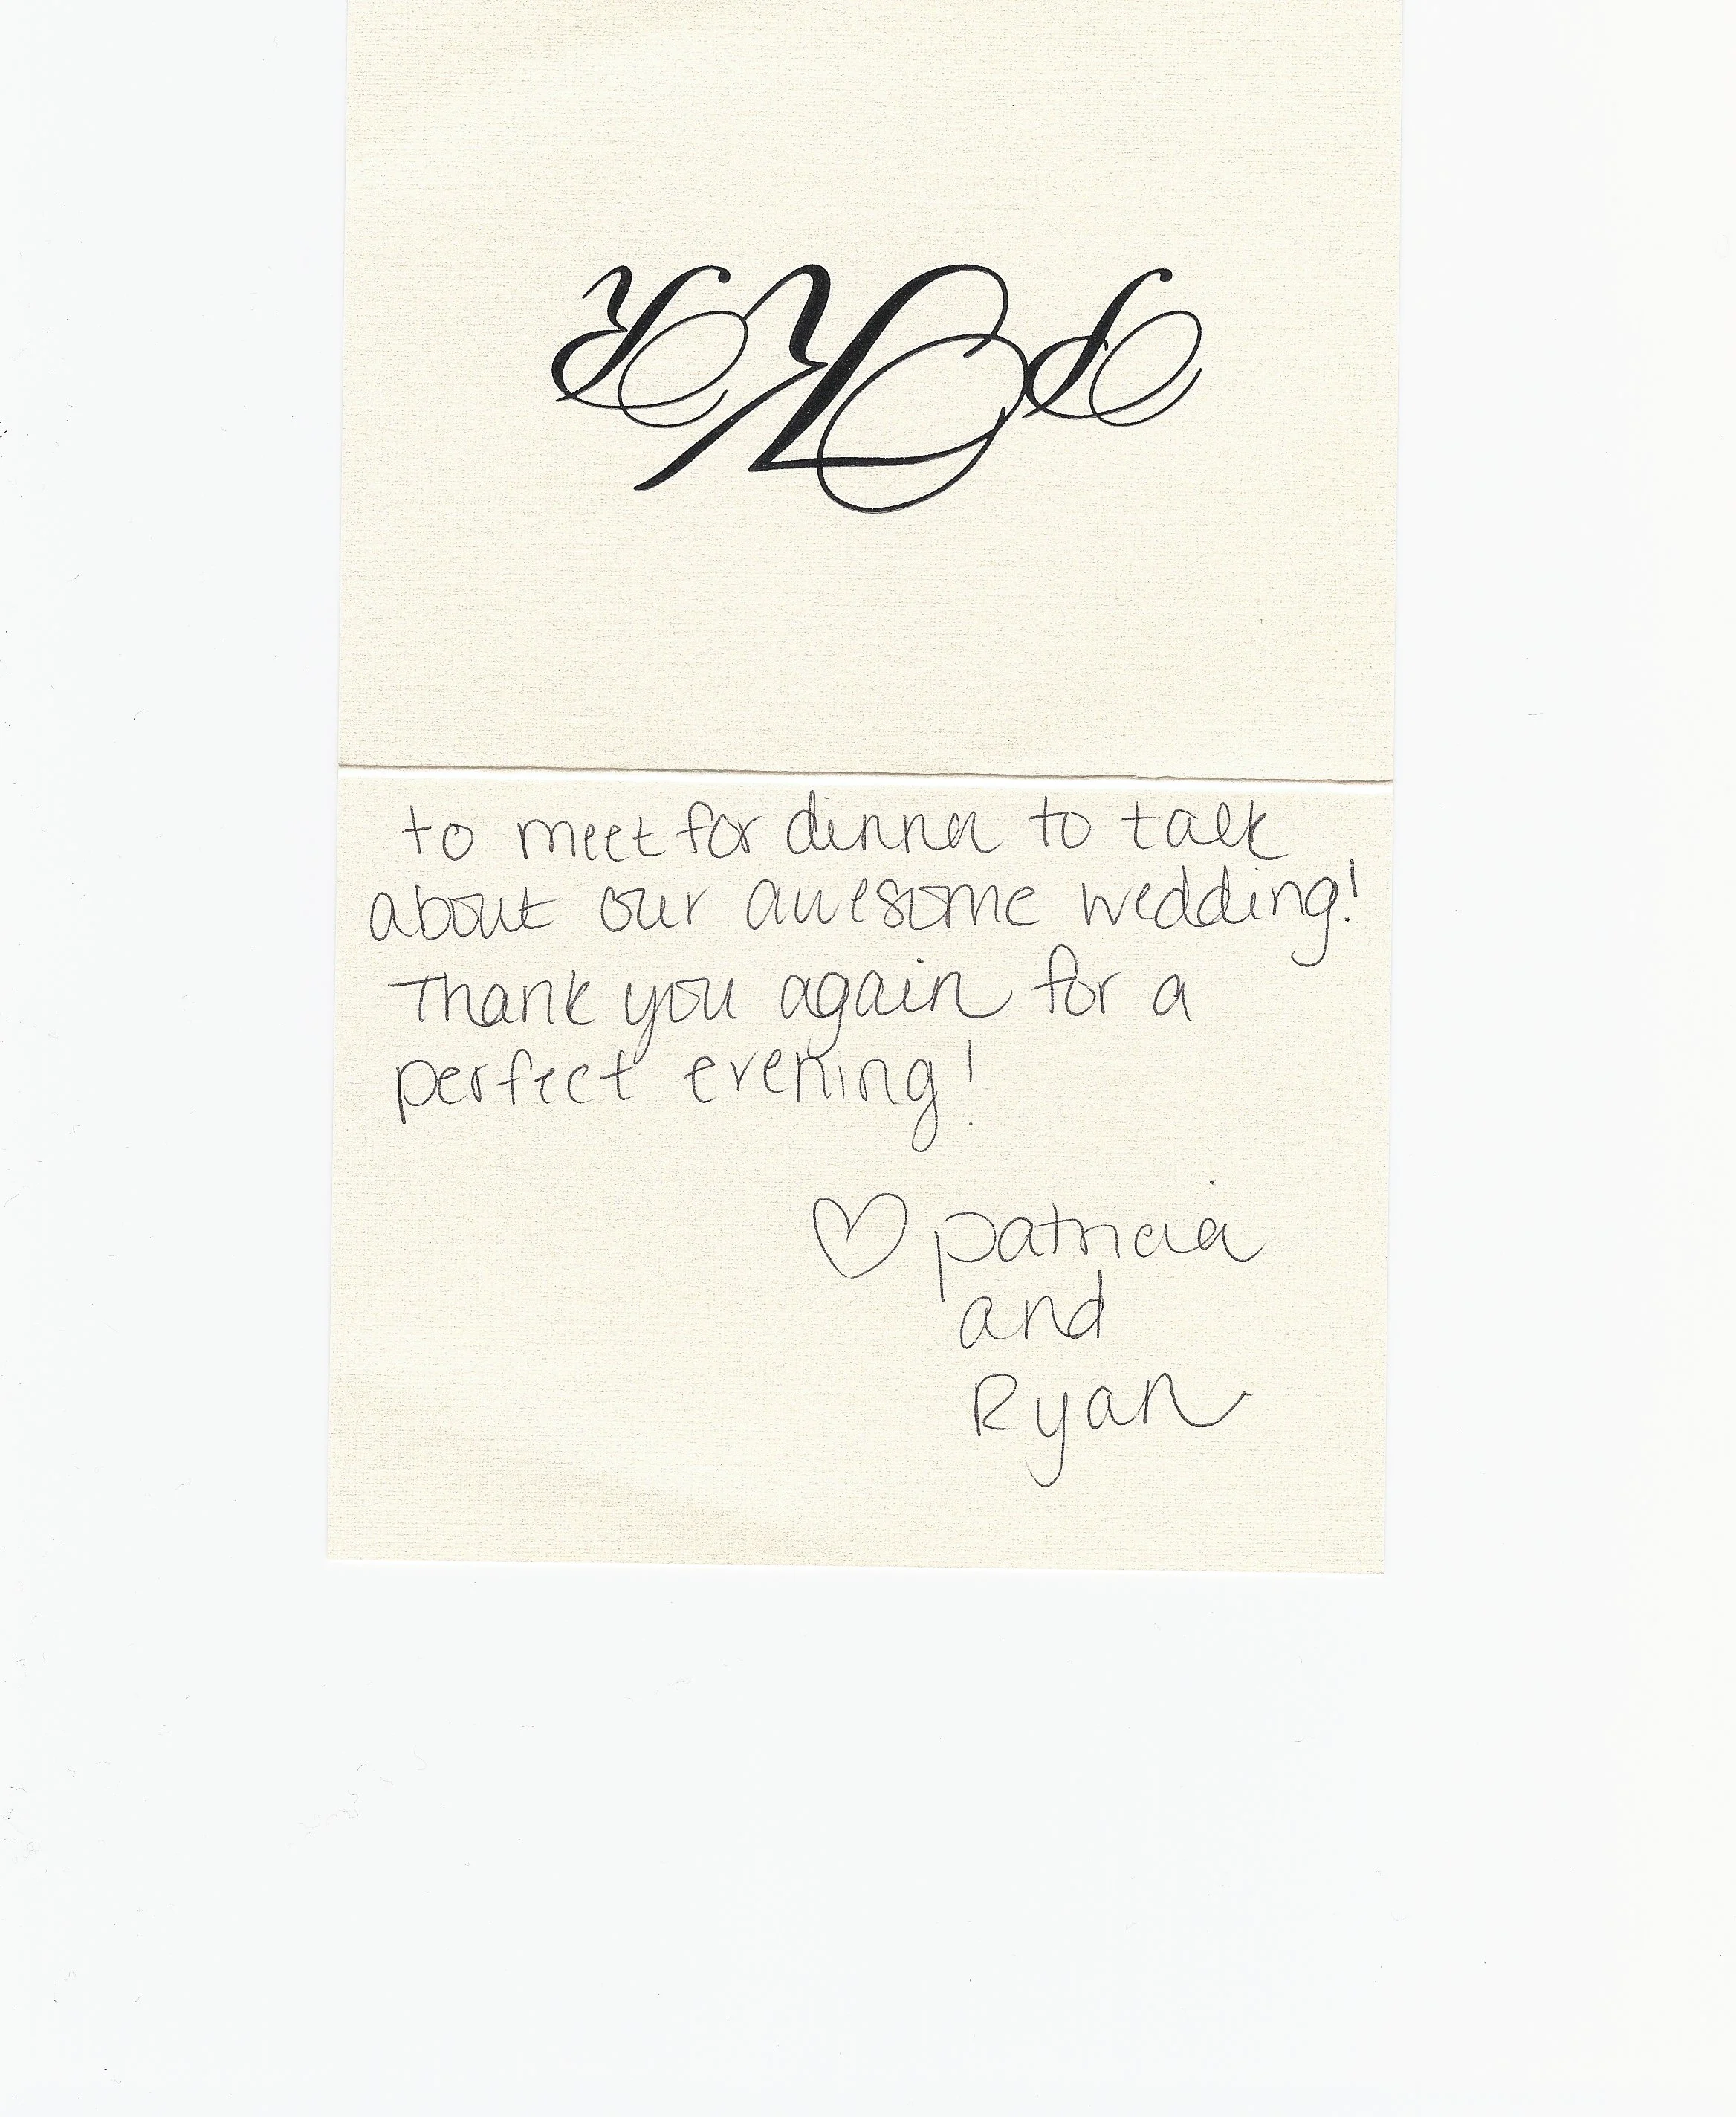 to meet for dinner to talk
about our awesome wedding!
Thank you again for a
perfect evening!
♡ patricia
and
Ryan